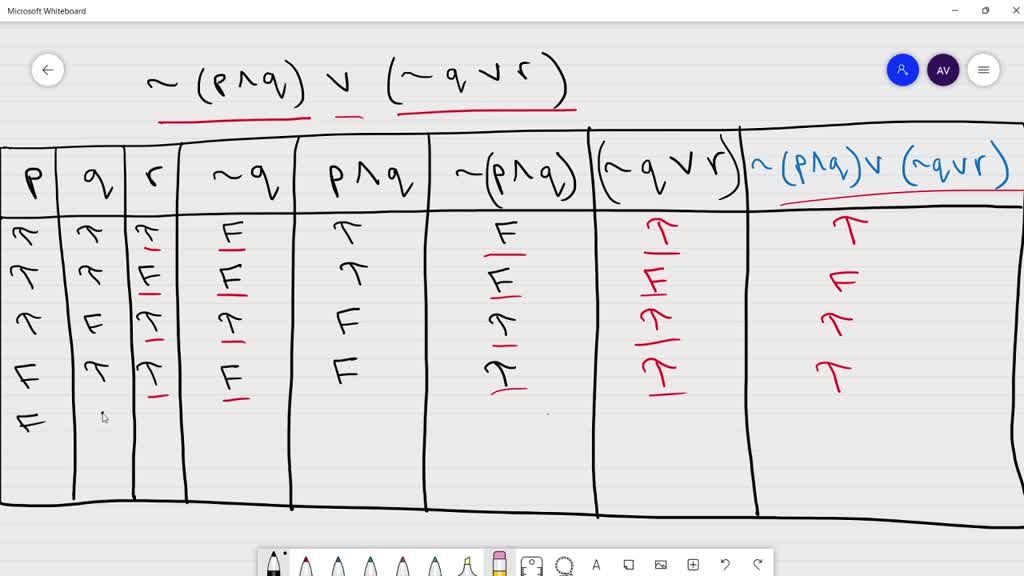 Microsoft Whiteboard
AV
~ (p ∧ q) ∨ (~ q ∨ r)
p q r ~q p ∧ q ~(p ∧ q) (~ q ∨ r) ~ (p ∧ q) ∨ (~q ∨ r)
T T T F T F T T
T T F F T F F F
T F T T F T T T
F T T F F T T T
F
A